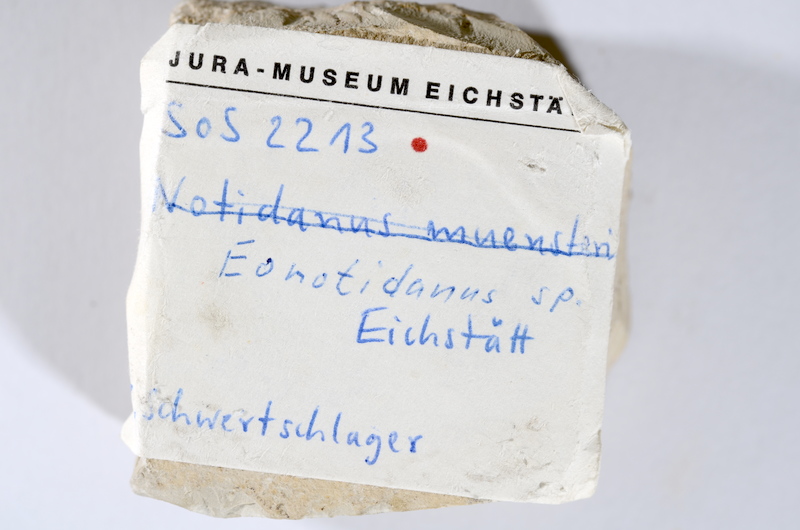 JURA-MUSEUM EICHSTÄ
SoS 2213
Notidanus muensteri
Eonotidanus sp.
Eichstätt
Schwertschlager